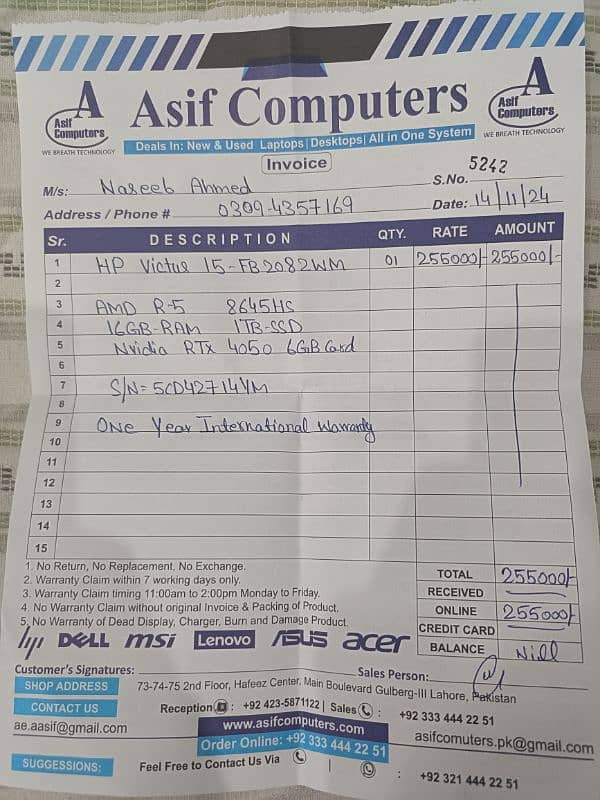 A
Asif Computers
WE BREATH TECHNOLOGY
Asif Computers
A
Asif Computers
WE BREATH TECHNOLOGY
Deals In: New & Used Laptops| Desktops| All in One System
Invoice
M/s: Naseeb Ahmed S.No. 5242
Address / Phone # 0309-4357169 Date: 14/11/24
Sr. DESCRIPTION QTY. RATE AMOUNT
1 HP Victus 15-FB2082WM 01 255000/- 255000/-
2
3 AMD R-5 8645HS
4 16GB-RAM 1TB-SSD
5 Nvidia RTX 4050 6GB Card
6
7 S/N=5CD42714YM
8
9 One Year International Warranty
10
11
12
13
14
15
1. No Return, No Replacement, No Exchange.
2. Warranty Claim within 7 working days only.
3. Warranty Claim timing 11:00am to 2:00pm Monday to Friday.
4. No Warranty Claim without original Invoice & Packing of Product.
5. No Warranty of Dead Display, Charger, Burn and Damage Product.
TOTAL 255000/-
RECEIVED
ONLINE 255000/-
CREDIT CARD
BALANCE Nill
hp DELL msi Lenovo ASUS acer
Customer's Signatures: Sales Person:
SHOP ADDRESS 73-74-75 2nd Floor, Hafeez Center, Main Boulevard Gulberg-III Lahore, Pakistan
CONTACT US Reception : +92 423-5871122 | Sales : +92 333 444 22 51
ae.aasif@gmail.com www.asifcomputers.com asifcomuters.pk@gmail.com
Order Online: +92 333 444 22 51
SUGGESTIONS: Feel Free to Contact Us Via | : +92 321 444 22 51